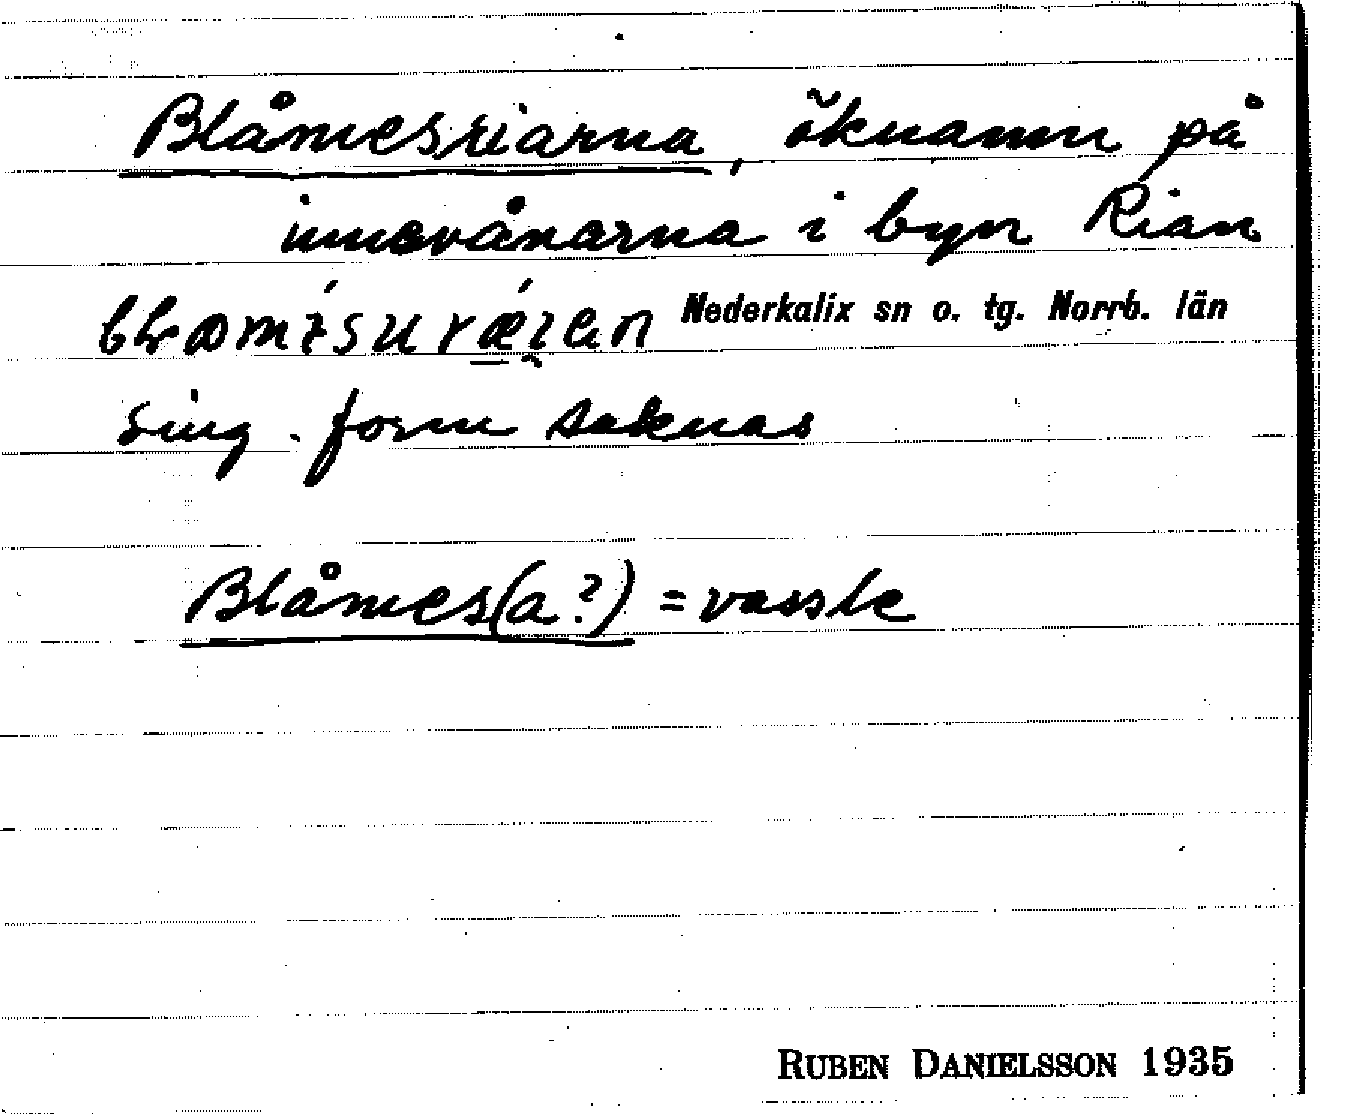 Blåmesriarna, öknamn på
innevånarna i byn Rian
Nederkalix sn o. tg. Norrb. län
sing. form saknas
Blåmes(a?) = vassle
RUBEN DANIELSSON 1935